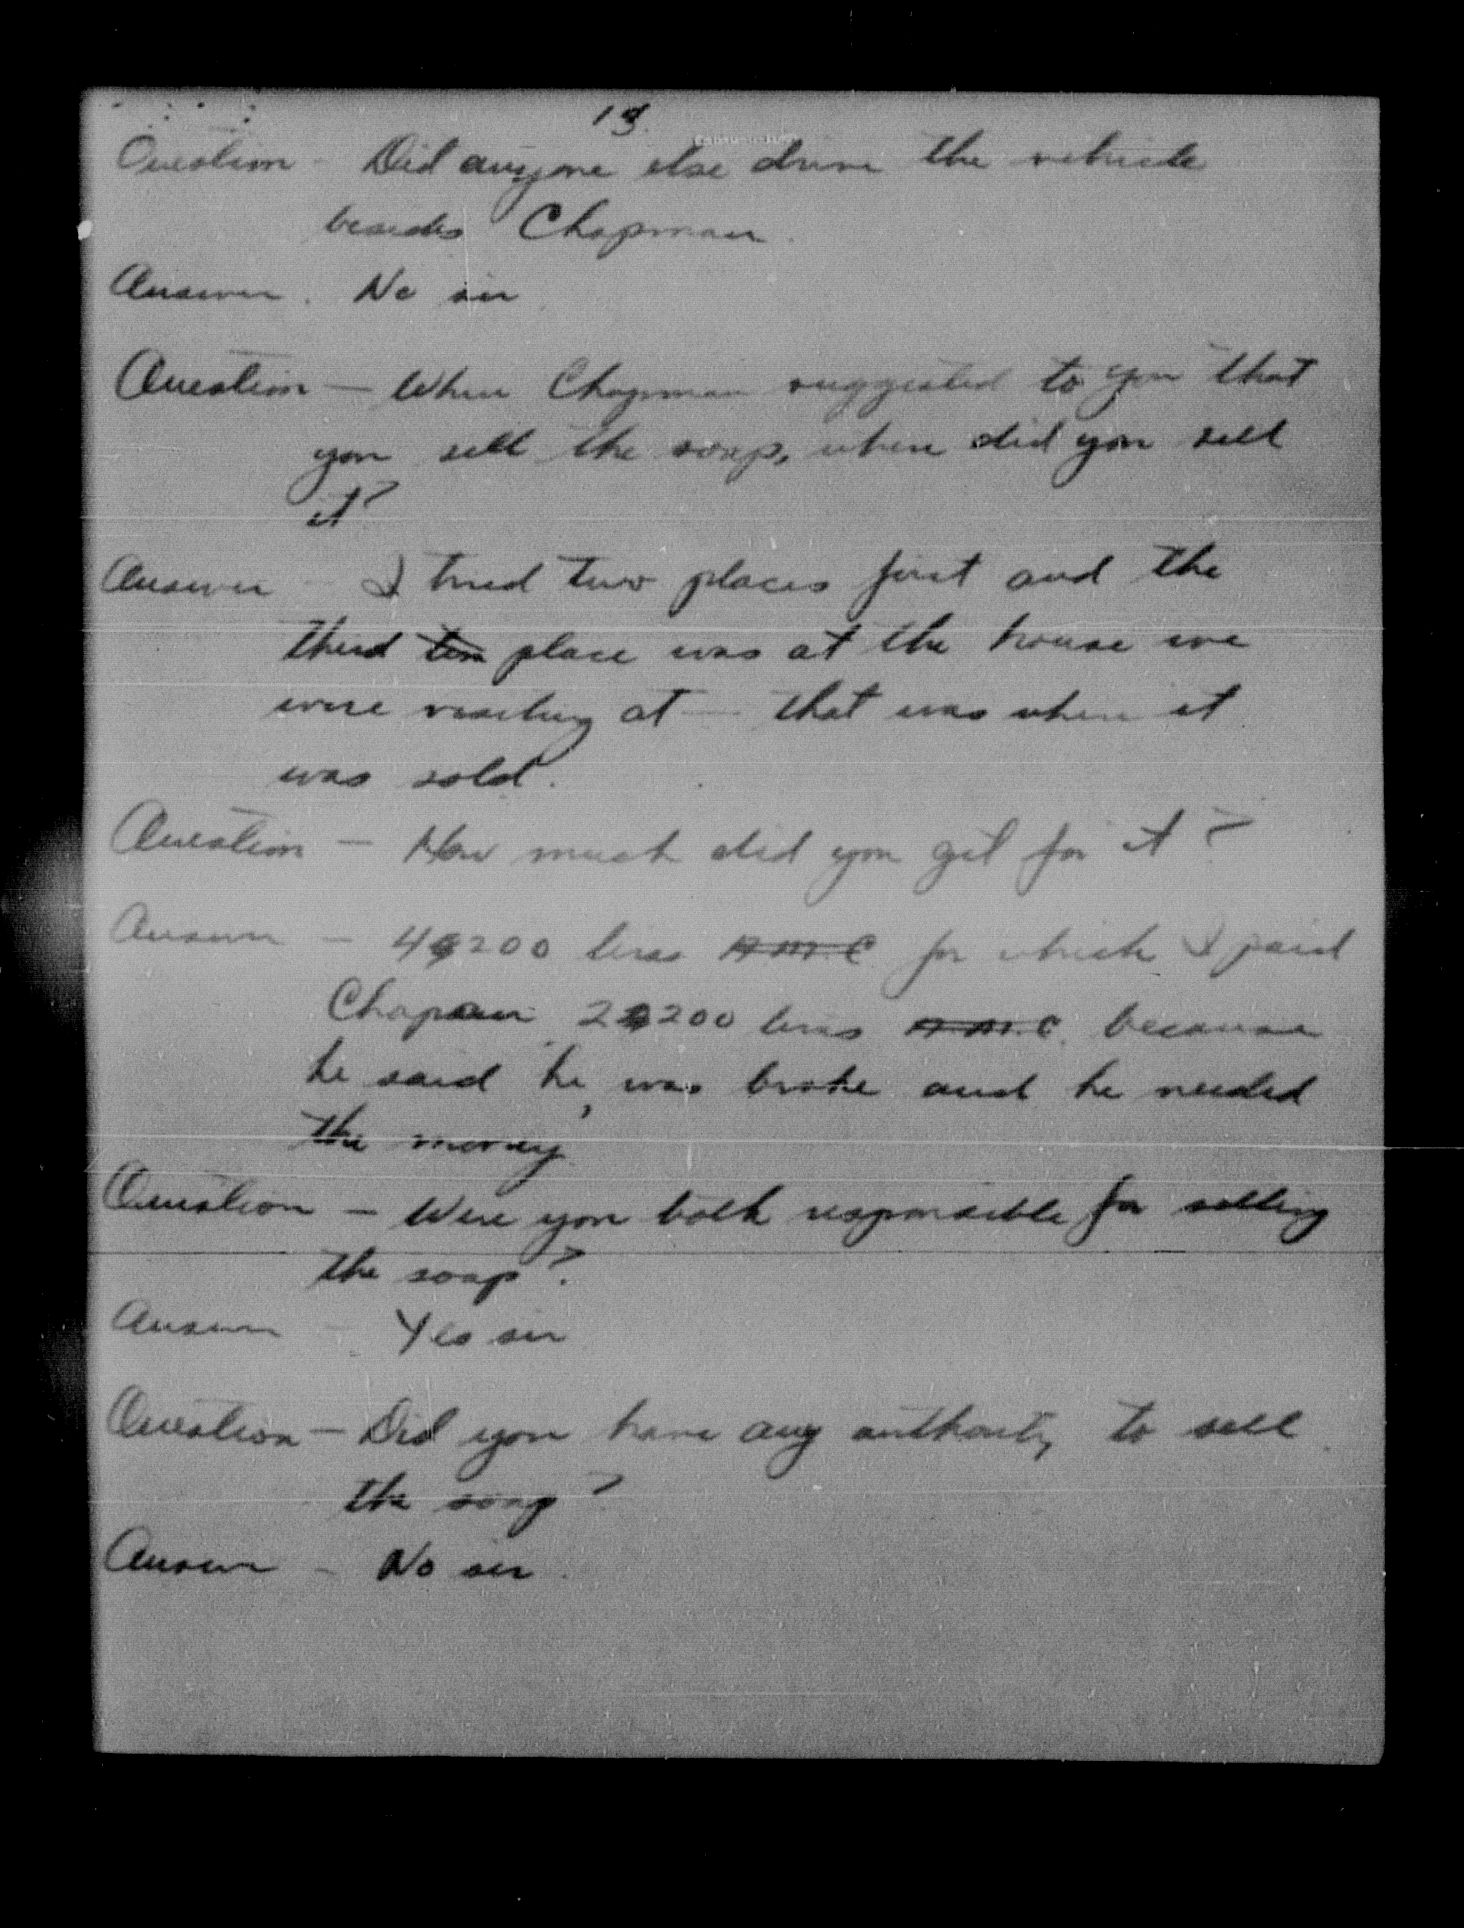 13.
Question - Did anyone else drive the vehicle
besides Chapman.
Answer. No sir
Question - When Chapman suggested to you that
you sell the soap, where did you sell
it?
Answer - I tried two places first and the
third place was at the house we
were visiting at - that was where it
was sold.
Question - How much did you get for it?
Answer - 200 liras A.M.C. for which I paid
Chapman 200 liras A.M.C. because
he said he was broke and he needed
the money
Question - Were you both responsible for selling
the soap?
Answer - Yes sir
Question - Did you have any authority to sell
the soap?
Answer - No sir.